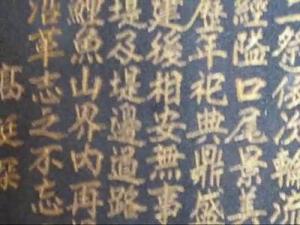 二祭依次輪流
經隘口尾景美
歷年祀典鼎盛
建後相安無事
堤及堤邊道路
鯉魚山界內再
沿革志之不忘
高廷琛